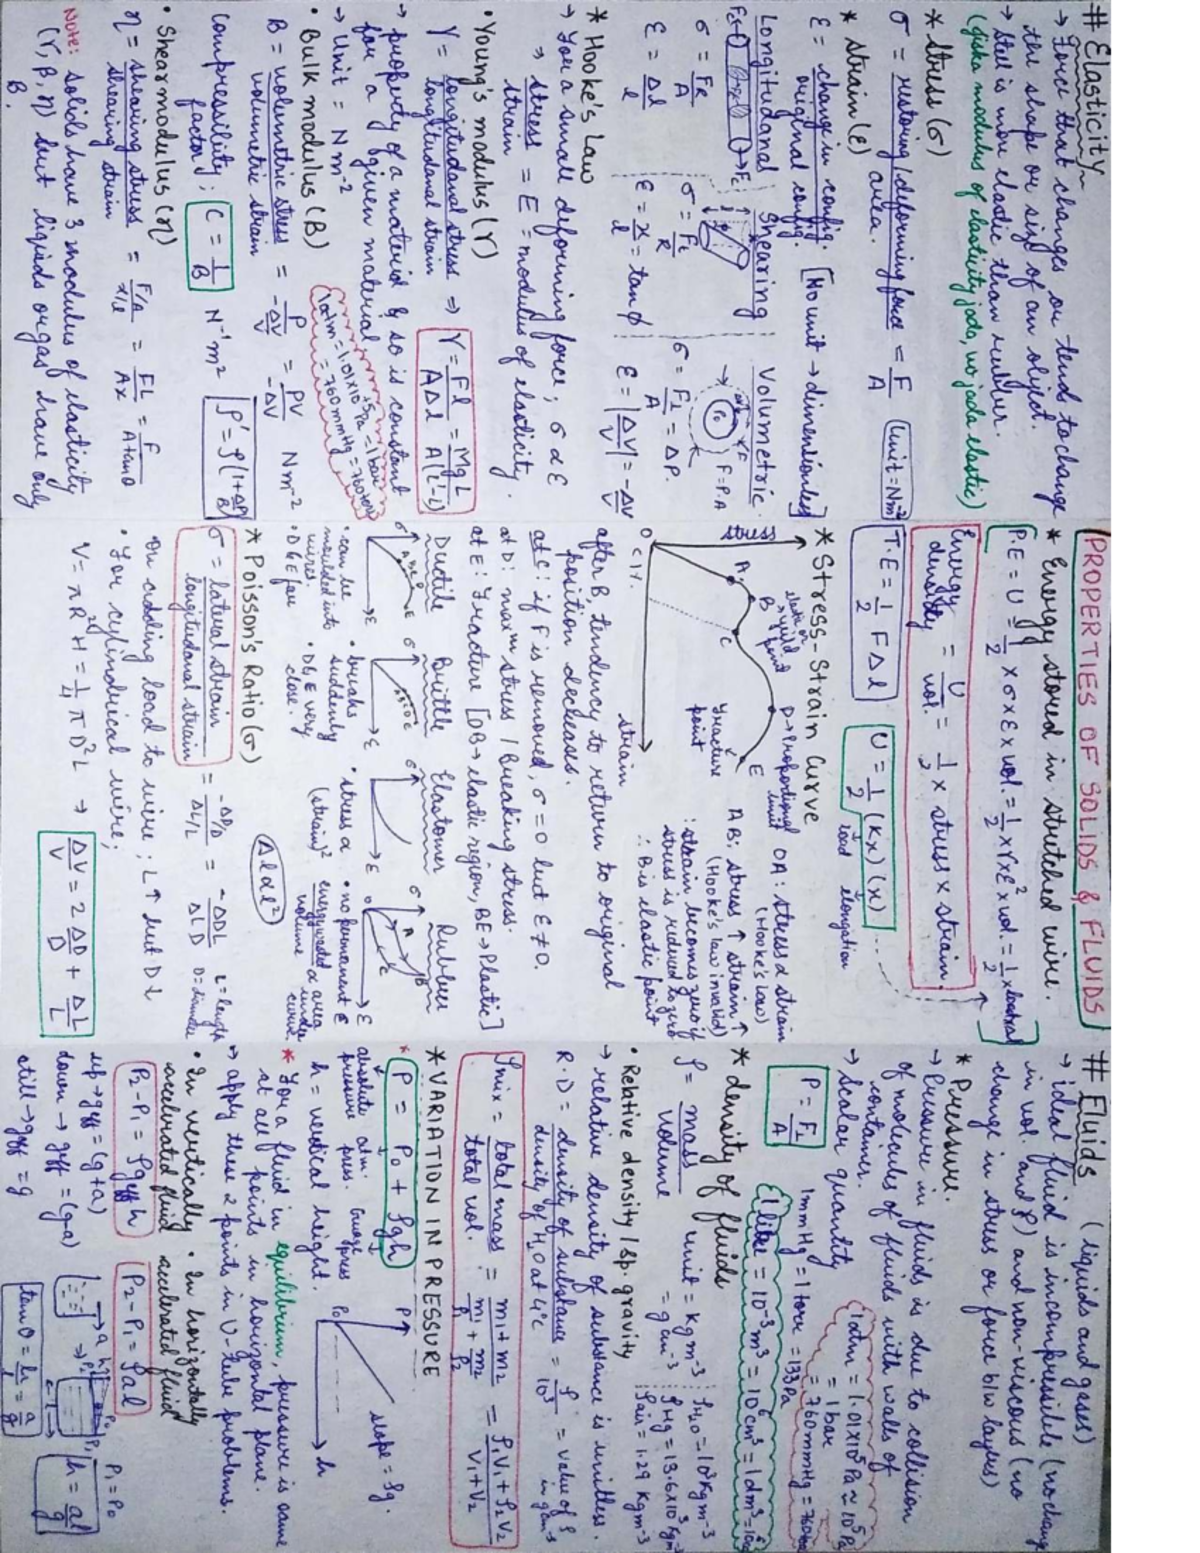 PROPERTIES OF SOLIDS & FLUIDS
# Elasticity
→ Force that changes or tends to change
the shape or size of an object.
→ Steel is more elastic than rubber.
(jiska modulus of elasticity jada, wo jada elastic)
* Stress (σ)
σ = restoring/deforming force / area. = F/A (unit = Nm⁻²)
* Strain (ε)
ε = change in config. / original config. [No unit → dimensionless]
Longitudanal | Shearing | Volumetric
σ = FR/A
ε = Δl/l
ε = x/l = tan ϕ
F = P.A
σ = F⊥/A = ΔP.
ε = |ΔV/V| = -ΔV/V
* Hooke's Law
→ For a small deforming force; σ α ε
⇒ stress/strain = E = modulus of elasticity.
• Young's modulus (Y)
Y = longitudanal stress / longitudanal strain ⇒ Y = Fl/AΔl = MgL/A(L'-L)
→ property of a material & so is constant
for a given material
→ Unit = Nm⁻²
1atm = 1.01×10⁵Pa = 1bar
= 760mmHg = 760torr
• Bulk modulus (B)
B = volumetric stress / volumetric strain = P / -ΔV/V = PV/-ΔV Nm⁻²
Compressibility factor; C = 1/B N⁻¹m² ρ' = ρ(1+ΔP/B)
• Shear modulus (η)
η = shearing stress / shearing strain = F/A / x/L = FL/Ax = F/A tanθ
Note: solids have 3 modulus of elasticity
(Y, B, η) but liquids or gas have only
B.
* Energy stored in stretched wire.
P.E = U = 1/2 × σ × ε × vol. = 1/2 × Y × ε² × vol. = 1/2 ×
Energy density = U/vol. = 1/2 × stress × strain.
T.E = 1/2 FΔl
U = 1/2 (Kx)(x)
load elongation
* Stress-Strain Curve
stress
O
A
B
C
D
E
strain
yield point
D → Proportional limit
fracture point
OA: stress α strain
(Hooke's law)
AB: stress ↑ strain ↑
(Hooke's law invalid)
: strain becomes zero if
stress is reduced to zero
∴ B is elastic point
after B, tendency to return to original
position decreases.
at C: if F is removed, σ = 0 but ε ≠ 0.
at D: maxᵐ stress / Breaking stress.
at E: fracture [OB → elastic region, BE → Plastic]
Ductile Brittle Elastomer Rubber
• can be moulded into wires.
• D & E far
• breaks suddenly
• D & E very close.
• stress α (strain)²
Δl α l²
• no permanent ε
energy wasted / volume α area under curve
* Poisson's Ratio (σ)
σ = lateral strain / longitudanal strain = -ΔD/D / ΔL/L = -ΔDL/ΔLD
L = length
On adding load to wire; L↑ but D↓
• For cylindrical wire;
V = πR²H = 1/4 πD²L → ΔV/V = 2ΔD/D + ΔL/L
# Fluids (liquids and gases)
→ ideal fluid is incompressible (no change
in vol. and ρ) and non-viscous (no
change in stress or force b/w layers)
* Pressure.
→ Pressure in fluids is due to collision
of molecules of fluids with walls of
container.
→ Scalar quantity
1atm = 1.01×10⁵Pa ≈ 10⁵Pa
= 1 bar
= 760mmHg = 760torr
P = F⊥/A
1mmHg = 1 torr = 133Pa
1 litre = 10⁻³m³ = 10³cm³ = 1dm³
* density of fluids
ρ = mass/volume unit = kgm⁻³ = gcm⁻³
ρH₂O = 10³kgm⁻³
ρHg = 13.6×10³kgm⁻³
ρair = 1.29 kgm⁻³
• Relative density / sp. gravity
→ relative density of substance is unitless.
R.D = density of substance / density of H₂O at 4°C = ρ/10³ = value of ρ in gcm⁻³
ρmix = total mass / total vol. = m₁+m₂ / m₁/ρ₁ + m₂/ρ₂ = ρ₁V₁+ρ₂V₂ / V₁+V₂
* VARIATION IN PRESSURE
* P = P₀ + ρgh
absolute pressure atm. press. Gauge press
h = vertical height.
P
P₀
slope = ρg.
h
* For a fluid in equilibrium, pressure is same
at all points in horizontal plane.
→ apply these 2 points in U-tube problems.
• In vertically accelerated fluid
P₂-P₁ = ρgeff h
up → geff = (g+a)
down → geff = (g-a)
still → geff = g
• In horizontally accelerated fluid
P₂-P₁ = ρal
P₁ = P₀
tanθ = h/l = a/g
h = al/g